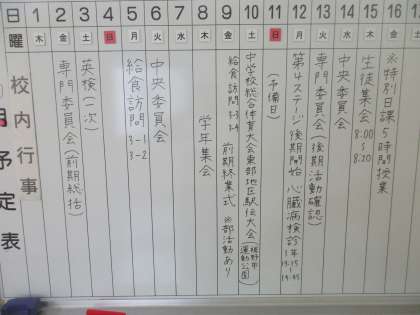 校内行事
月予定表
日 1 2 3 4 5 6 7 8 9 10 11 12 13 14 15 16
曜 木 金 土 日 月 火 水 木 金 土 日 月 火 水 木 金
専門委員会(前期総括)
英検(一次)
給食訪問 3-1 3-2
中央委員会
学年集会
給食訪問 3-3 3-4 前期終業式 ※部活動あり
中学校総合体育大会東部地区駅伝大会
運動公園
(予備日)
第4ステージ 後期開始 心臓病検診 1年
専門委員会(後期活動確認)
中央委員会
生徒集会 8:00~8:20
※特別日課5時間授業